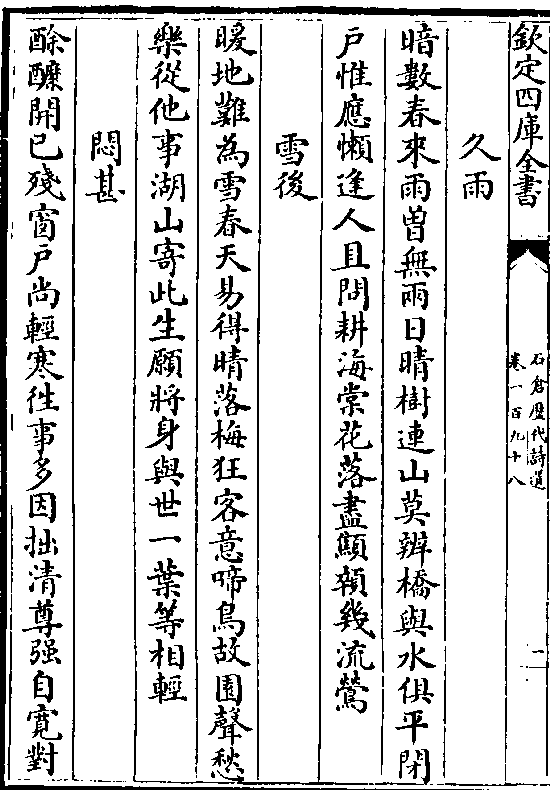 欽定四庫全書
石倉歷代詩選
卷一百九十八
二
久雨
暗數春來雨曾無兩日晴樹連山莫辨橋與水俱平閉
戶惟應懶逢人且問耕海棠花落盡顦顇幾流鶯
雪後
暖地難為雪春天易得晴落梅狂客意啼鳥故園聲愁
樂從他事湖山寄此生願將身與世一葉等相輕
悶甚
酴醿開已殘窗戶尚輕寒徃事多因拙清尊强自寛對